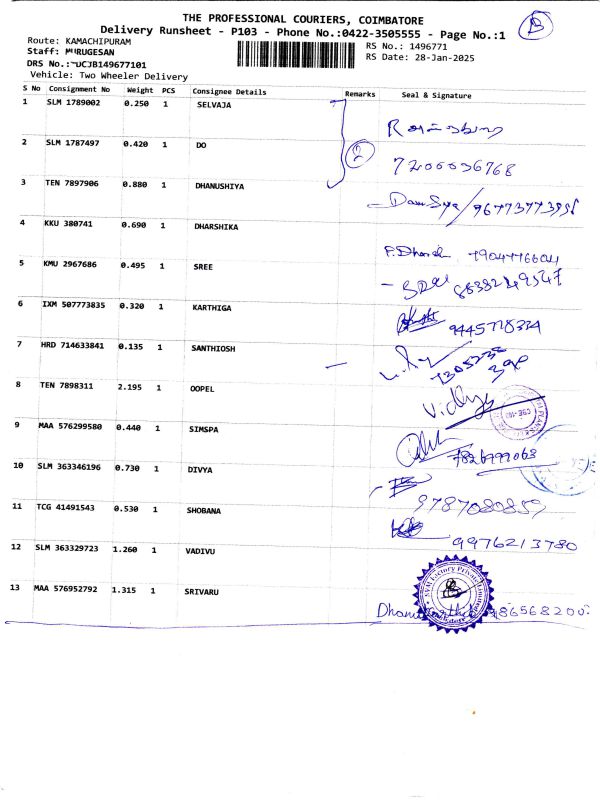 THE PROFESSIONAL COURIERS, COIMBATORE
Delivery Runsheet - P103 - Phone No.:0422-3505555 - Page No.:1
B
Route: KAMACHIPURAM
RS No.: 1496771
Staff: MURUGESAN
RS Date: 28-Jan-2025
DRS No.: DCJB149677101
Vehicle: Two Wheeler Delivery
S No Consignment No Weight PCS Consignee Details Remarks Seal & Signature
1 SLM 1789002 0.250 1 SELVAJA
2 SLM 1787497 0.420 1 DO 2
7200036768
3 TEN 7897906 0.880 1 DHANUSHIYA
4 KKU 380741 0.690 1 DHARSHIKA
5 KMU 2967686 0.495 1 SREE
6 IXM 507773835 0.320 1 KARTHIGA
7 HRD 714633841 0.135 1 SANTHIOSH
8 TEN 7898311 2.195 1 OOPEL
Vidhya
9 MAA 576299580 0.440 1 SIMSPA
10 SLM 363346196 0.730 1 DIVYA
9787080859
11 TCG 41491543 0.530 1 SHOBANA
9976213780
12 SLM 363329723 1.260 1 VADIVU
13 MAA 576952792 1.315 1 SRIVARU